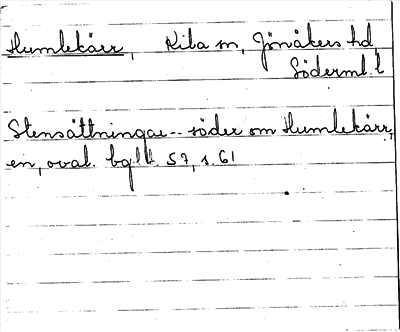 Humlekärr, Kila sn, Jönåkers hd,
Söderml. l
Stensättningar -- söder om Humlekärr,
en, oval. bglt. 57, s. 61